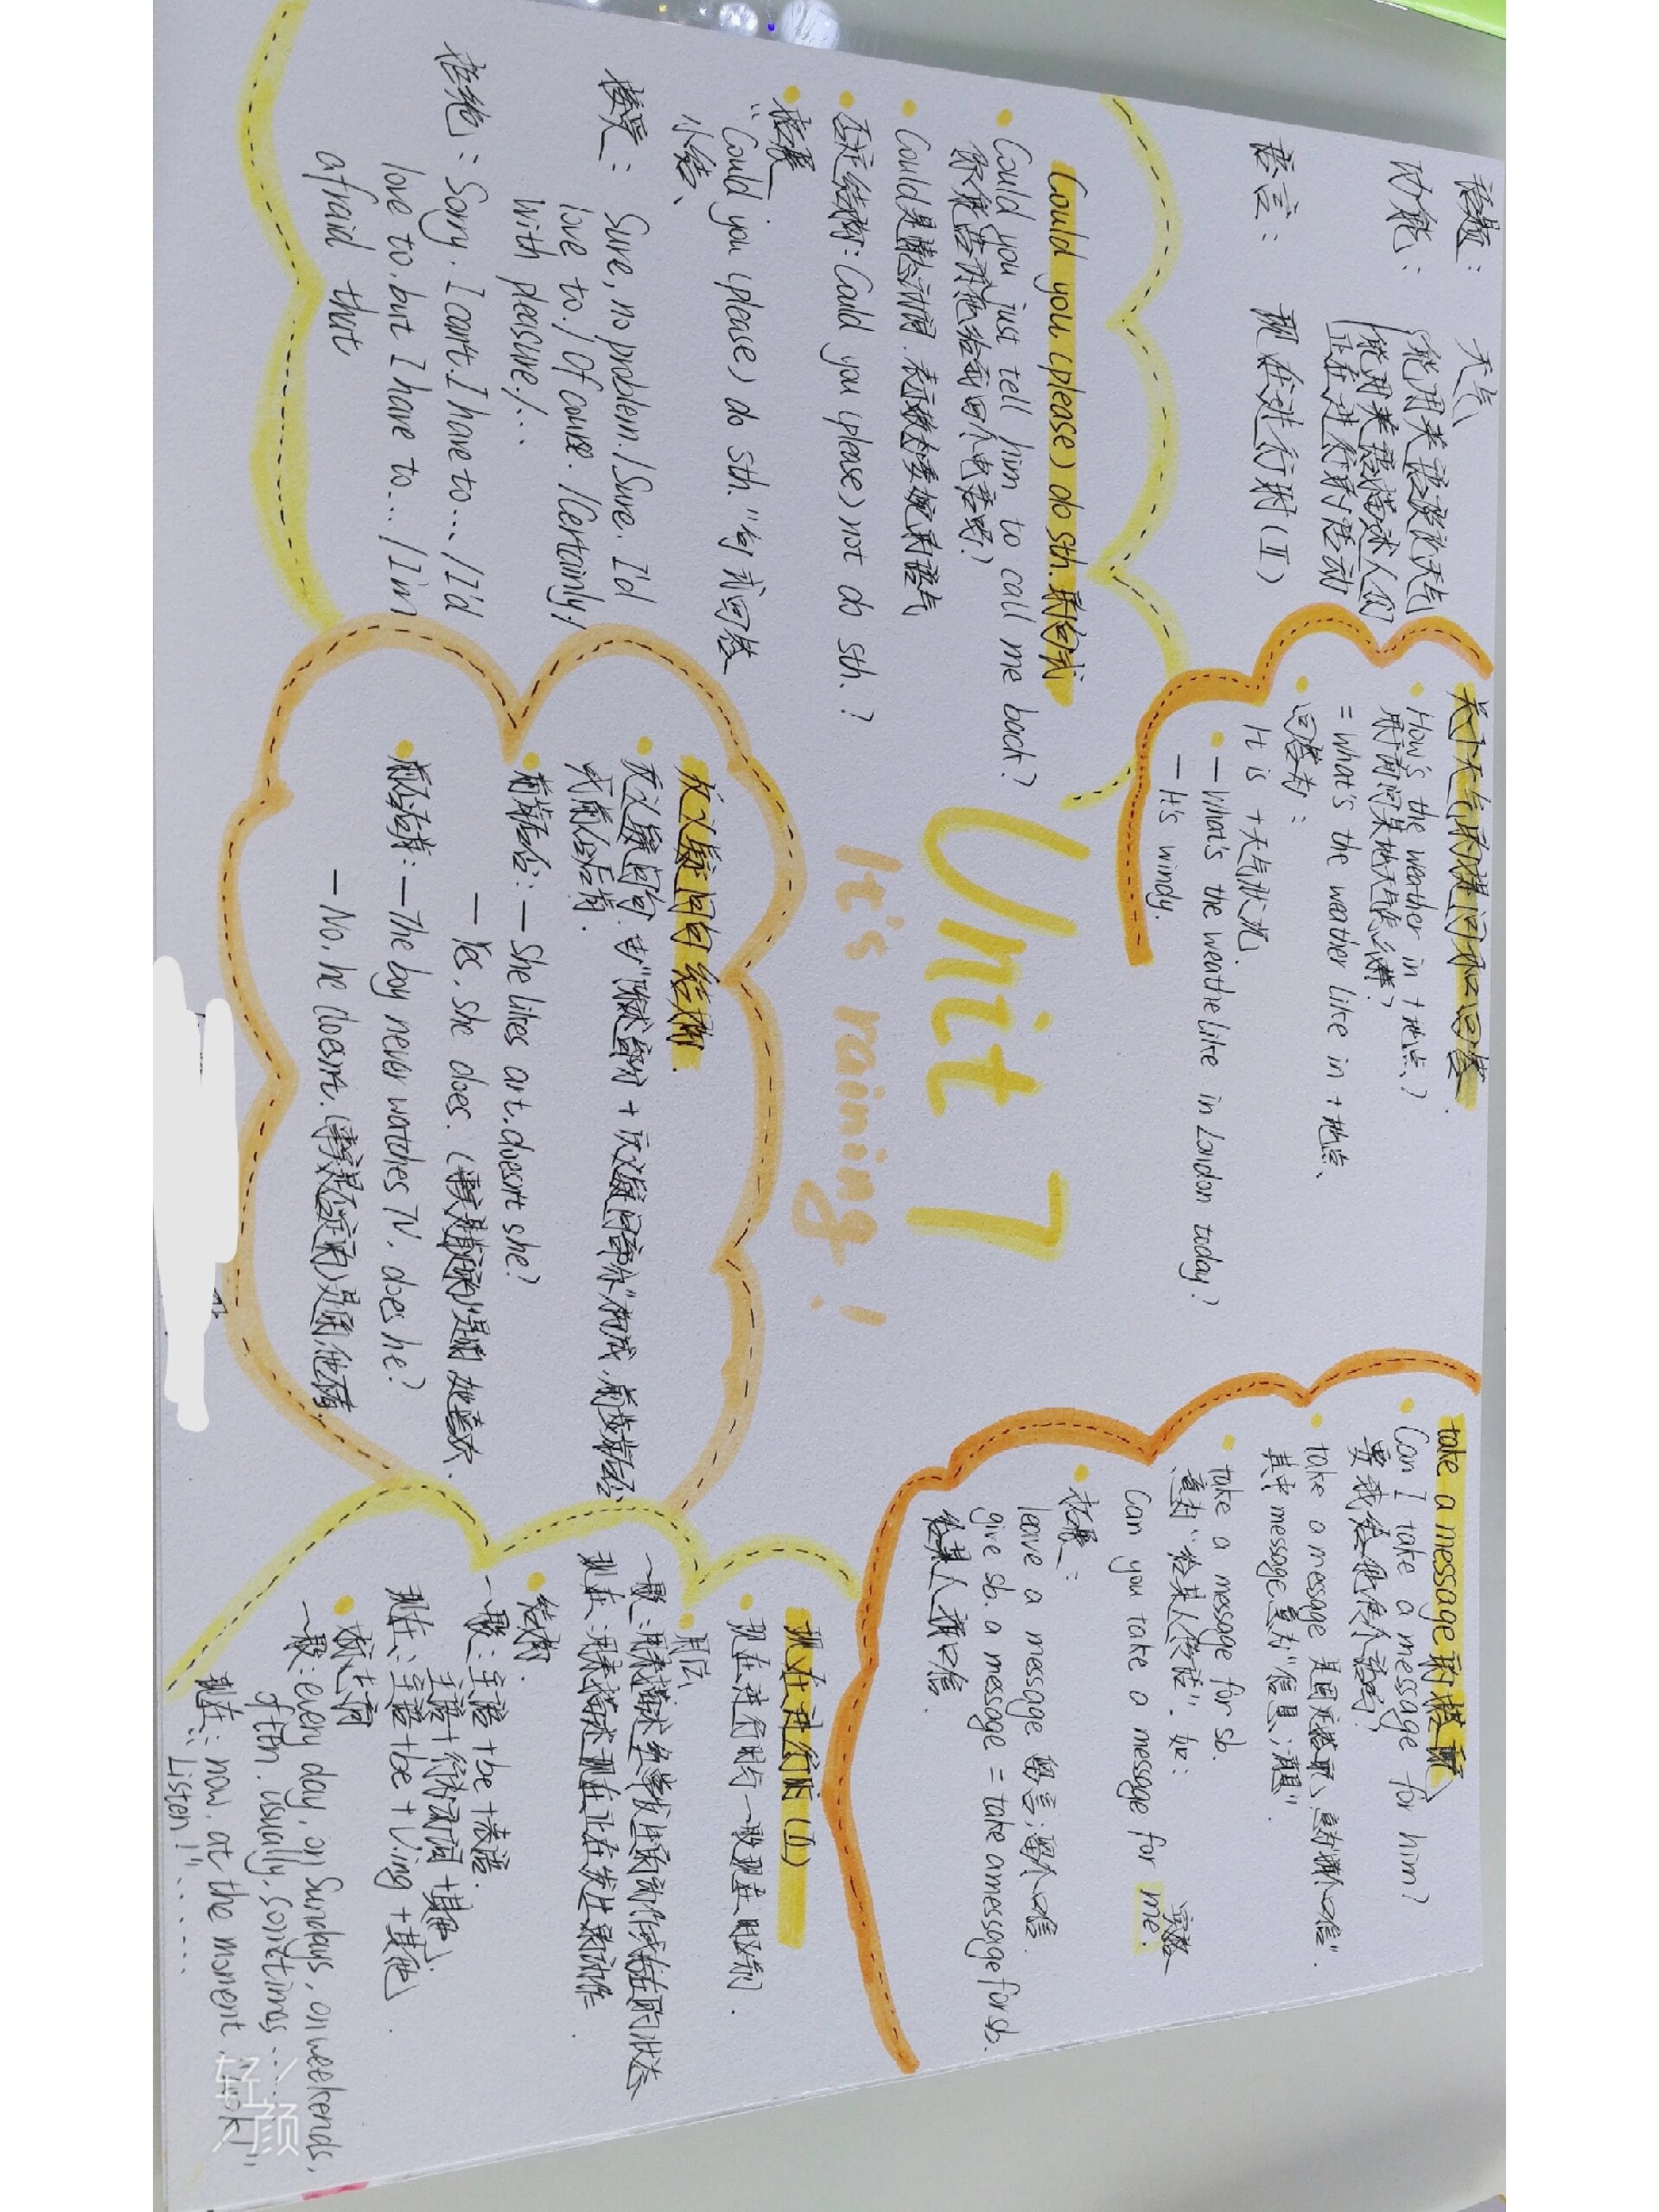 话题： 天气
功能： 能用英语谈论天气
能用英语描述人们
正在进行的活动
语言： 现在进行时(Ⅱ)
关于天气的提问和回答
How's the weather in +地点？
用于询问某地天气怎么样？
= what's the weather like in +地点、
回答为：
It is +天气状况、
— What's the weathe like in London today?
— It's windy.
take a message 的搭配
Can I take a message for him?
要我给他传个话吗？
take a message 是固定搭配、意为"捎个口信"．
其中message意为"信息；消息"．
take a message for sb. 宾格
意为"给某人传话"．如：
Can you take a message for me.
拓展：
leave a message 留言；留个口信．
give sb. a message = take a message for sb.
给某人捎口信．
Could you (please) do sth. 的句式
Could you just tell him to call me back?
你能告诉他给我回个电话吗？
Could是情态动词．表示较为委婉的语气
否定结构：Could you (please) not do sth. ?
拓展
"Could you (please) do sth." 句式问答
小结、
接受： Sure, no problem. / Sure. I'd
love to. / Of course. / Certainly /
with pleasure. /...
拒绝：Sorry. I can't. I have to... / I'd
love to. but I have to... / I'm
afraid that
Unit 7
It's raining !
反义疑问句结构．
反义疑问句．由"陈述部分 + 反义疑问部分"构成，前肯后否
或前否后肯．
前肯后否：— She likes art. doesn't she?
— Yes, she does. (事实是肯定的)是的，她喜欢．
前否后肯：— The boy never watches TV. does he?
— No, he doesn't. (事实是否定的)是的，他不看．
现在进行时(Ⅱ)
现在进行时与一般现在时区别．
用法
一般：用来描述经常发生的动作或存在的状态
现在：用来描述现在正在发生的动作
结构．
一般：主语+be+表语．
主语+行为动词+其他．
现在：主语+be+Ving+其他
标志词
一般：every day, on Sundays, on weekends,
often, usually, sometimes...
现在：now, at the moment "Look!"
Listen!"......
轻颜